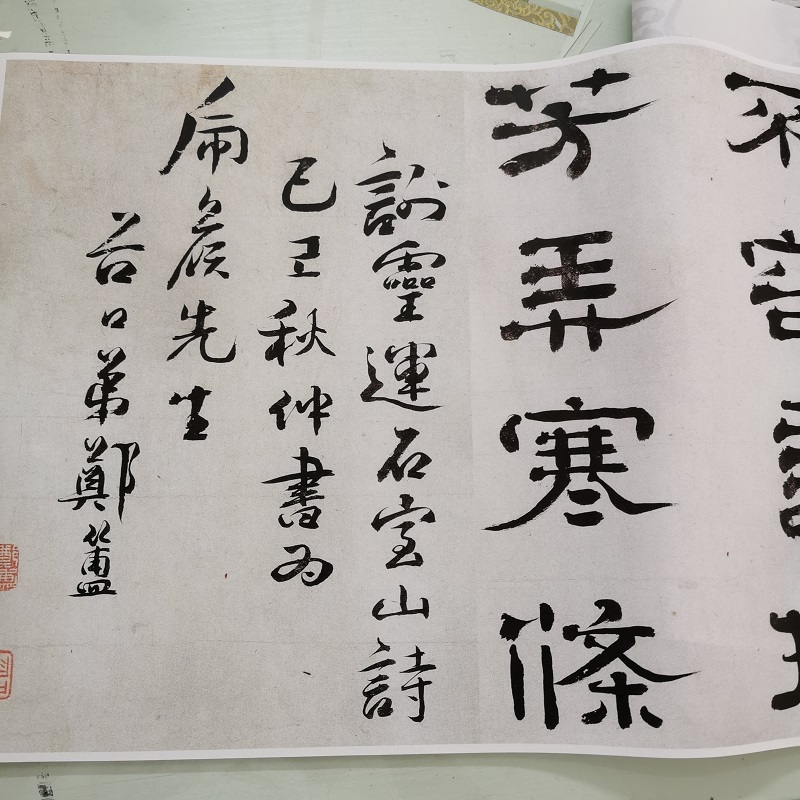 芳弄寒條
謝靈運石室山詩
己丑秋仲書為
矦先生
谷口弟鄭簠